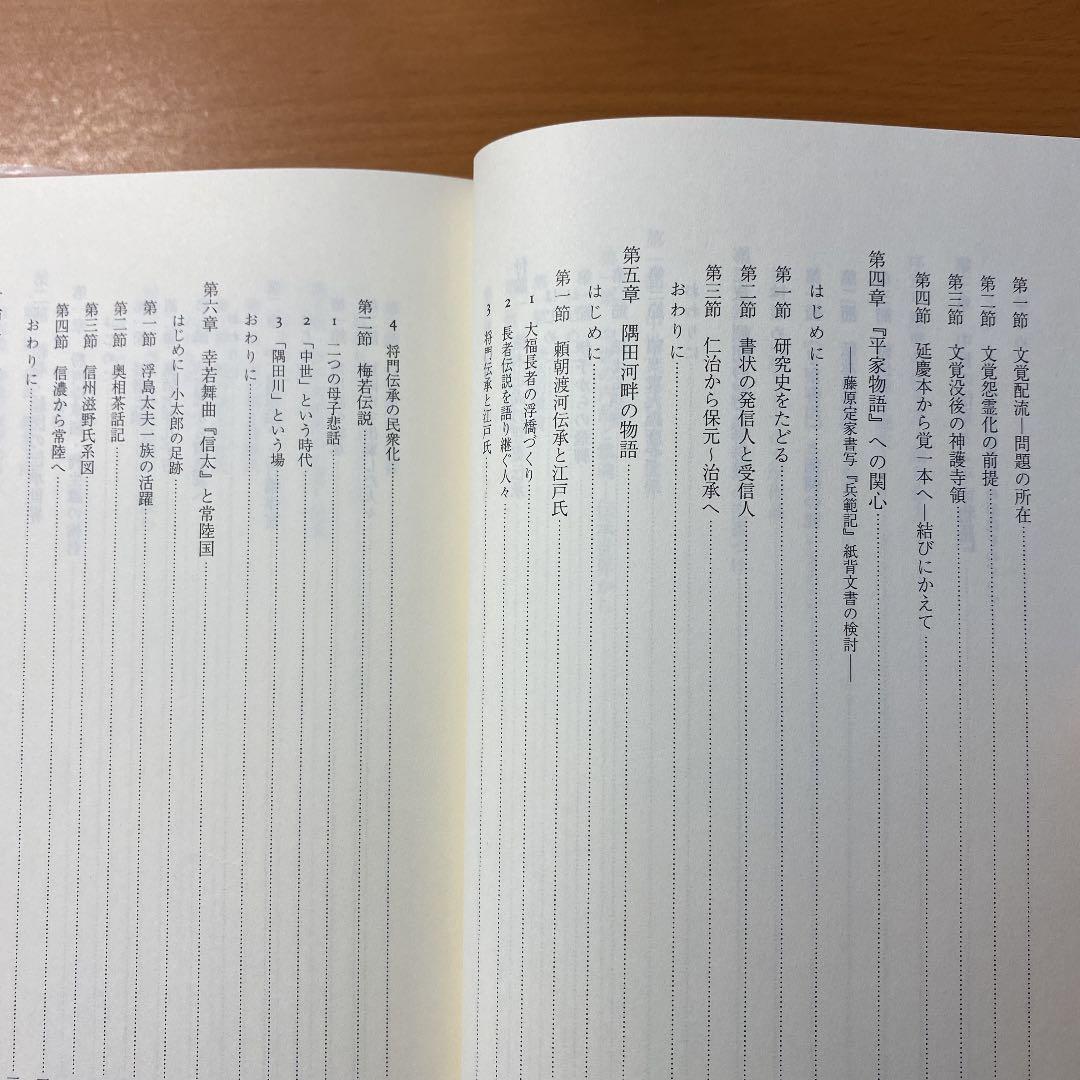 第一節 文覚配流―問題の所在
第二節 文覚怨霊化の前提
第三節 文覚没後の神護寺領
第四節 延慶本から覚一本へ―結びにかえて
第四章 『平家物語』への関心
――藤原定家書写『兵範記』紙背文書の検討――
はじめに
第一節 研究史をたどる
第二節 書状の発信人と受信人
第三節 仁治から保元～治承へ
おわりに
第五章 隅田河畔の物語
はじめに
第一節 頼朝渡河伝承と江戸氏
1 大福長者の浮橋づくり
2 長者伝説を語り継ぐ人々
3 将門伝承と江戸氏
4 将門伝承の民衆化
第二節 梅若伝説
1 二つの母子悲話
2 「中世」という時代
3 「隅田川」という場
おわりに
第六章 幸若舞曲『信太』と常陸国
はじめに―小太郎の足跡
第一節 浮島太夫一族の活躍
第二節 奥相茶話記
第三節 信州滋野氏系図
第四節 信濃から常陸へ
おわりに